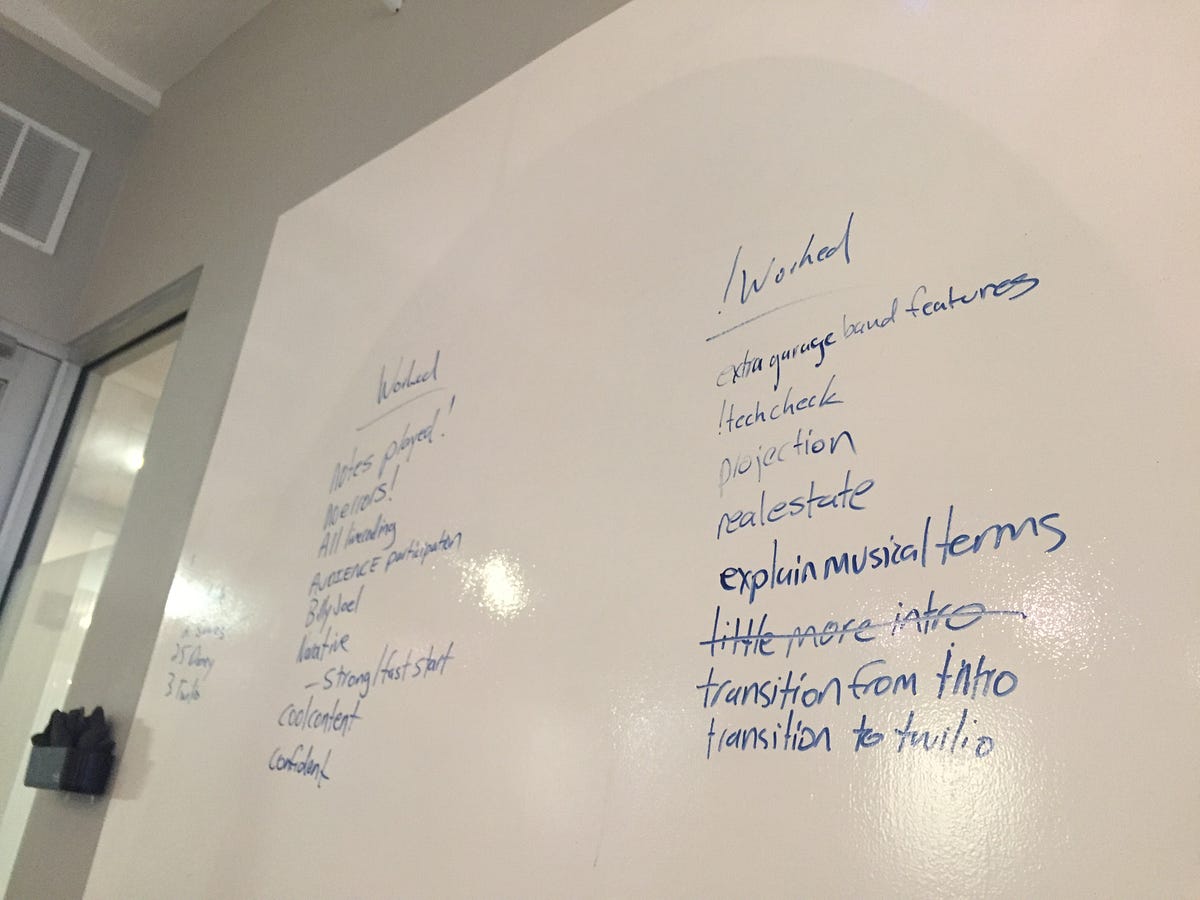 Worked
Notes played!
no errors!
All livecoding
AUDIENCE participation
Billy Joel
Narative
- Strong/fast start
cool content
Confident
!Worked
extra garage band features
!tech check
projection
realestate
explain musical terms
little more intro
transition from intro
transition to twilio